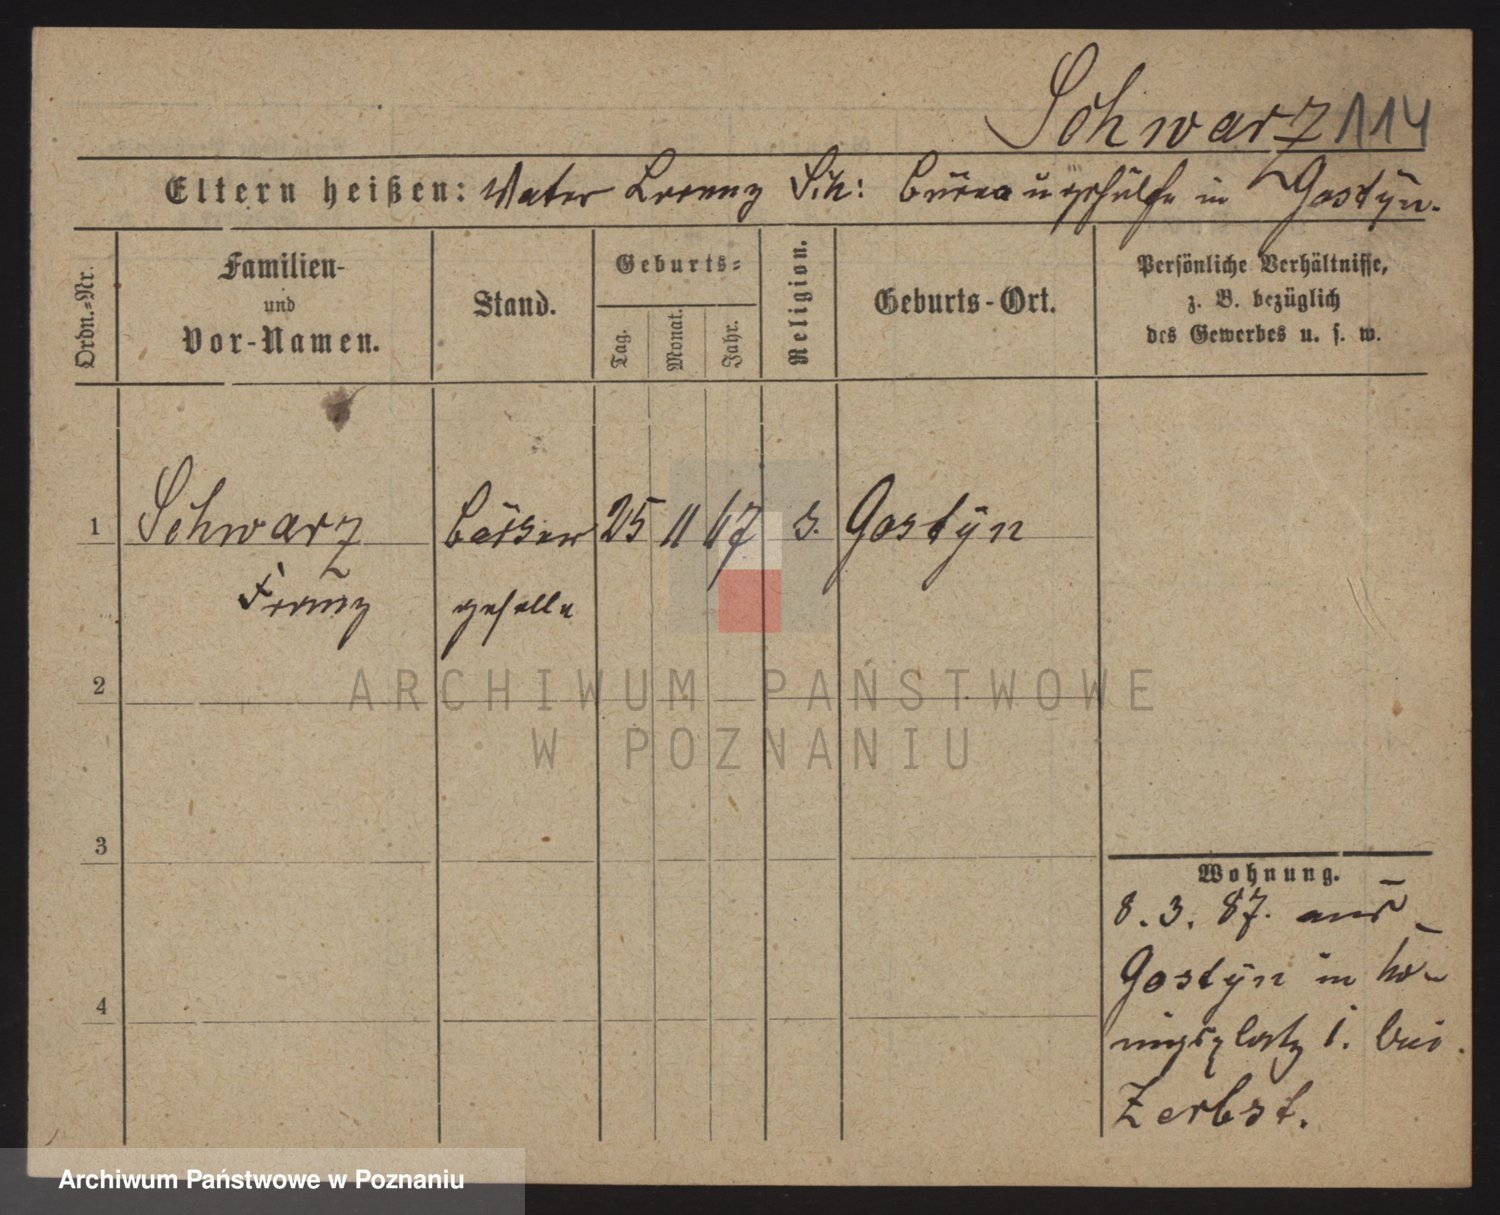 Schwarz 114
Eltern heißen: Vater Franz Sch: Büreaugehülfe in Gostÿn.
Ordn.-Nr.
Familien-
und
Vor-Namen.
Stand.
Geburts-
Tag.
Monat.
Jahr.
Religion.
Geburts-Ort.
Persönliche Verhältnisse,
z. B. bezüglich
des Gewerbes u. s. w.
1 Schwarz Bäcker 25 11 67 Gostÿn
Franz geselle
2
3
4
Wohnung.
8. 3. 87. aus
Gostÿn in Kö-
nigsplatz 1. bei
Zerbst.
ARCHIWUM PAŃSTWOWE
W POZNANIU
Archiwum Państwowe w Poznaniu